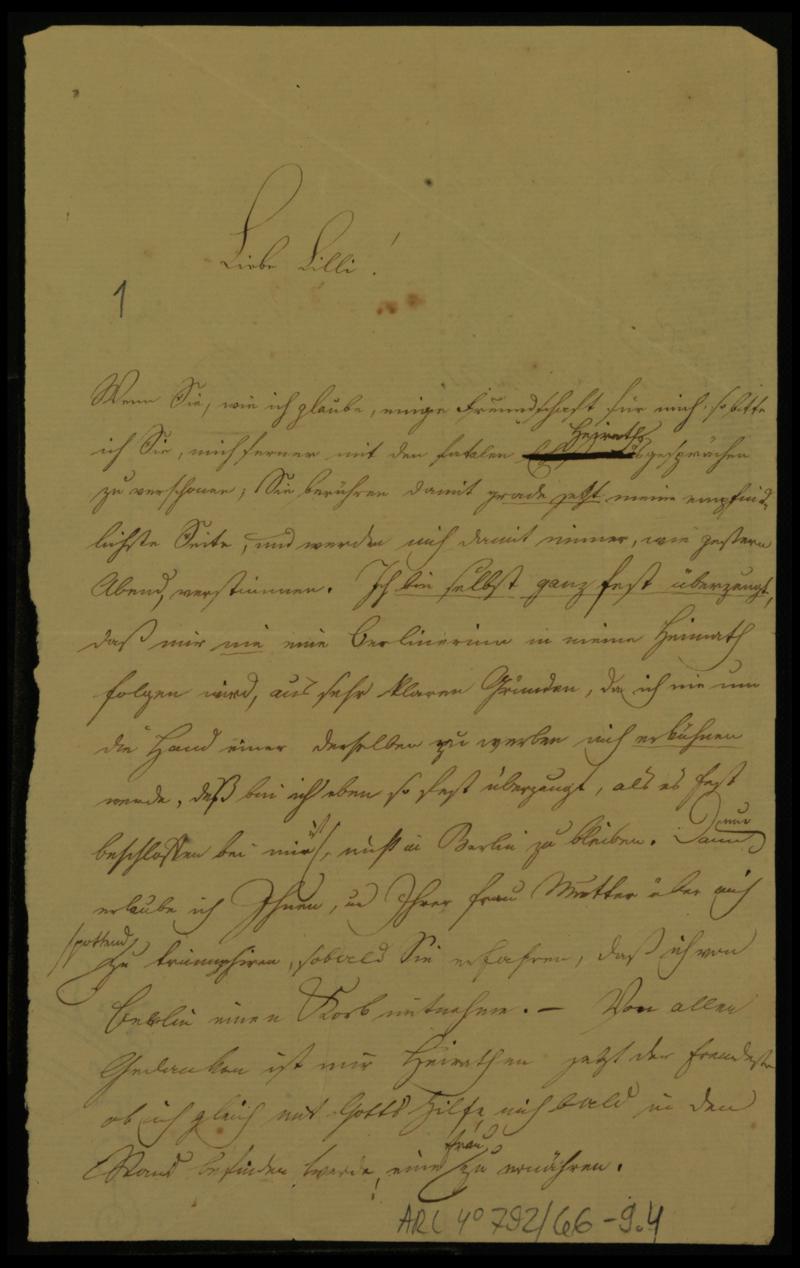 Liebe Lilli!
1
Wenn Sie, wie ich glaube, einige Freundschaft für mich, so bitte
ich Sie, mich ferner mit den fatalen Heiraths
gesprächen
zu verschonen; Sie berühren damit grade jetzt meine empfind-
lichste Seite, und werden mich damit immer, wie gestern
Abend, verstimmen. Ich bin selbst ganz fest überzeugt,
daß mir nie eine Berlinerinn in meine Heimath
folgen wird, aus sehr klaren Gründen, da ich nie um
die Hand einer derselben zu werben mich erkühnen
werde, deß bin ich eben so fest überzeugt, als es fest
beschlossen bei mir ist, nicht in Berlin zu bleiben. Dann nur
erlaube ich Ihnen, und Ihrer Frau Mutter über mich
spottend zu triumphiren, sobald Sie erfahren, daß ich von
Berlin einen Korb mitnehme. — Von allen
Gedanken ist mir Heirathen jetzt der fremdeste
ob ich gleich mit Gottes Hilfe mich bald in den
Stand befinden werde, eine Frau zu ernähren.
ARC 4° 792/G6-9.4